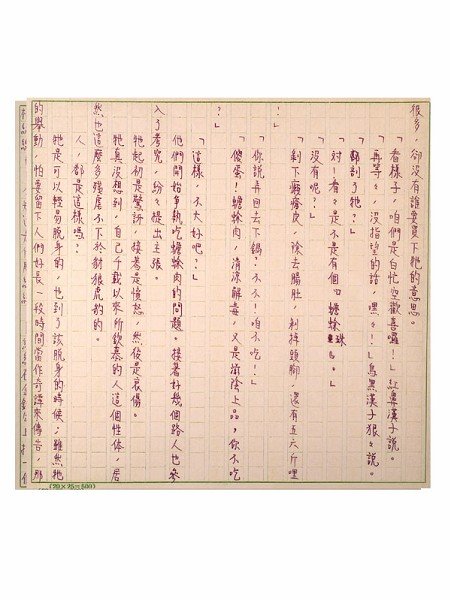 很多，卻沒有誰要買下牠的意思。
「看樣子，咱們是白忙空歡喜囉！」紅鼻漢子說。
「再等々，沒指望的話，嘿々！」烏黑漢子狠々說。
「剁了牠？」
「對！看々是不是有個『蟾蜍珠』。」
「沒有呢？」
「剝下癩瘡皮，除去腸肚，剁掉頭腳，還有五六斤哩
！」
「你說弄回去下鍋？不不！咱不吃！」
「傻蛋！蟾蜍肉，清涼解毒，又是滋陰上品，你不吃
？」
「這樣，不大好吧？」
他們開始爭執吃蟾蜍肉的問題。接著好幾個路人也參
入了考究，紛々提出主張。
牠起初是驚訝，接著是憤怒，然後是哀傷。
牠真沒想到，自己千載以來所欽慕的人這個性体，居
然也這麼多殘虐不下於豺狼虎豹的。
人，都是這樣嗎？
牠是可以輕易脫身的，也到了該脫身的時候；雖然牠
的舉動，怕要留下人們好長一段時間當作奇譚來傳告，那
(20×25=500)